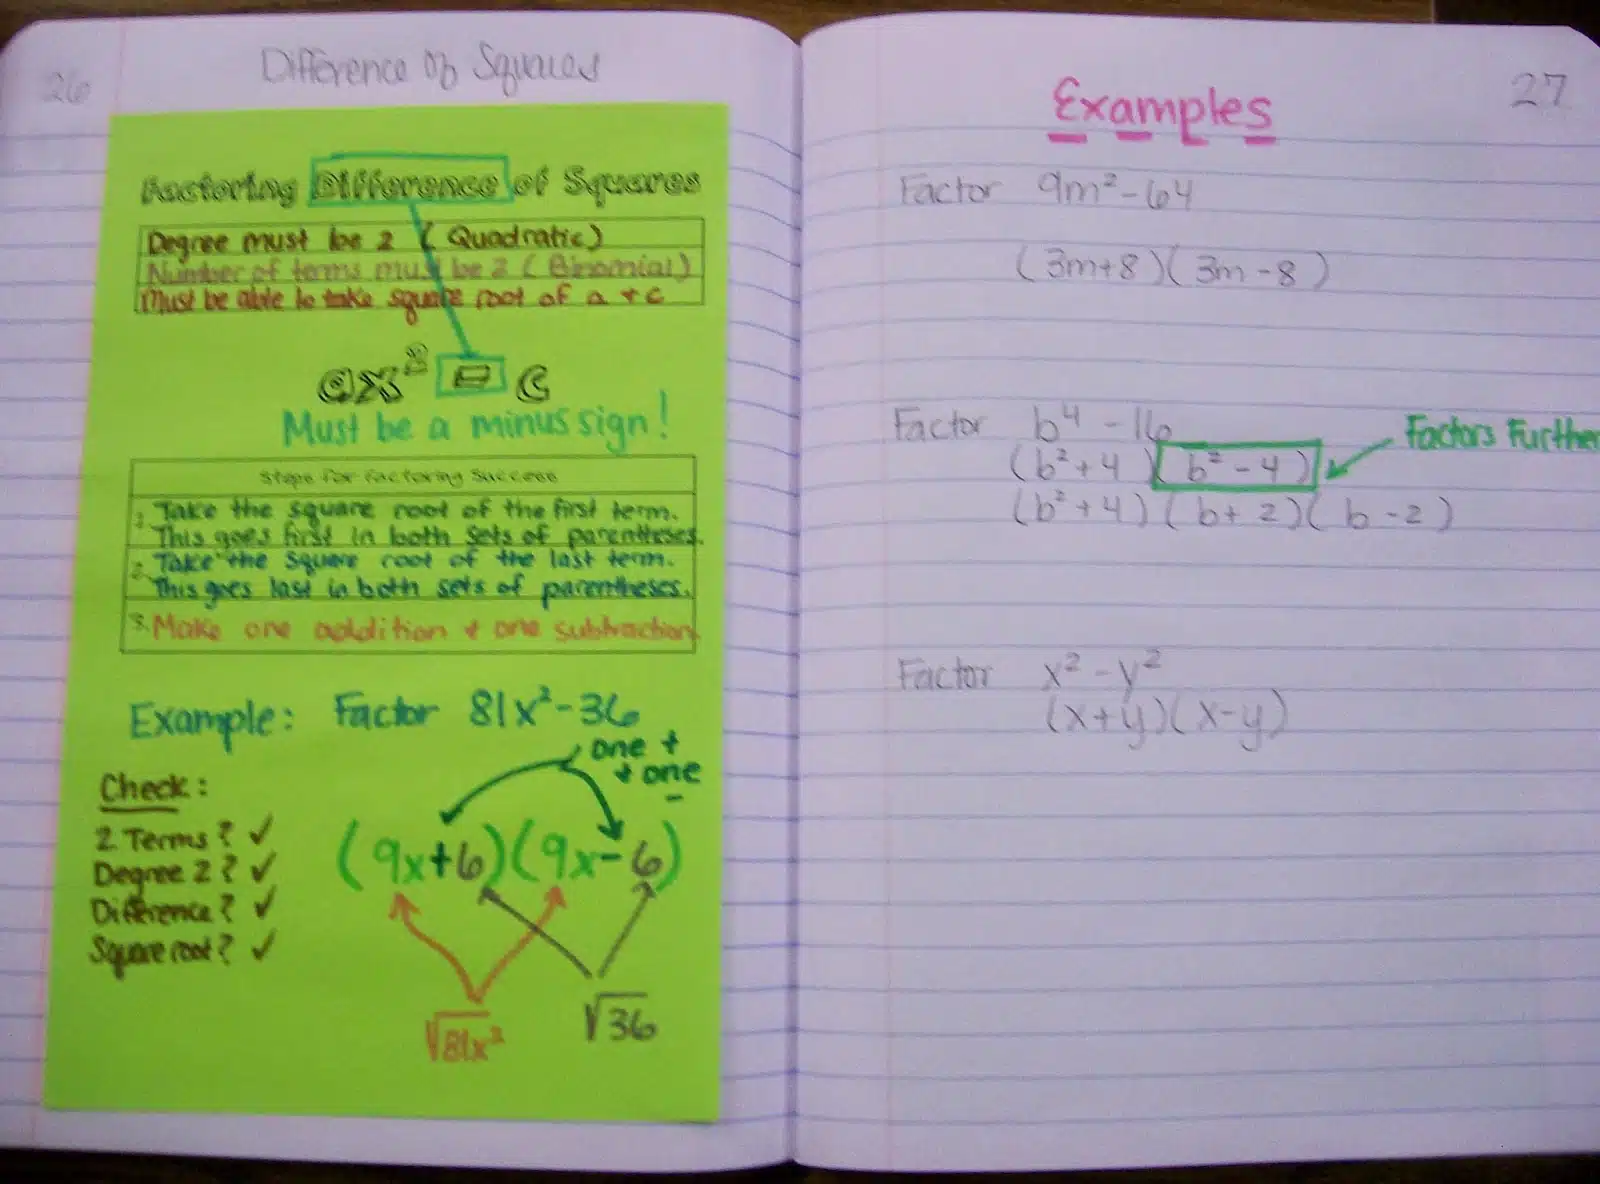 26
Difference of Squares
Factoring Difference of Squares
Degree must be 2 (Quadratic)
Number of terms must be 2 (Binomial)
Must be able to take square root of a + c
ax² - c
Must be a minus sign!
Steps for Factoring Success
1. Take the square root of the first term.
This goes first in both sets of parentheses.
2. Take the square root of the last term.
This goes last in both sets of parentheses.
3. Make one addition + one subtraction.
Example: Factor 81x² - 36
one +
+ one
-
Check:
2 Terms? ✓
Degree 2? ✓
Difference? ✓
Square root? ✓
(9x+6)(9x-6)
√81x²
√36
27
Examples
Factor 9m² - 64
(3m+8)(3m-8)
Factor b⁴ - 16
(b²+4)(b²-4)
Factors Further
(b²+4)(b+2)(b-2)
Factor x² - y²
(x+y)(x-y)